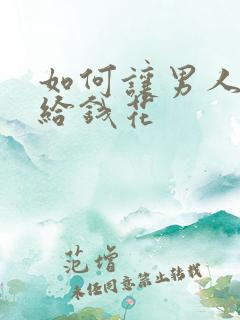 如何讓男人
給錢花
范增
未经同意禁止转载